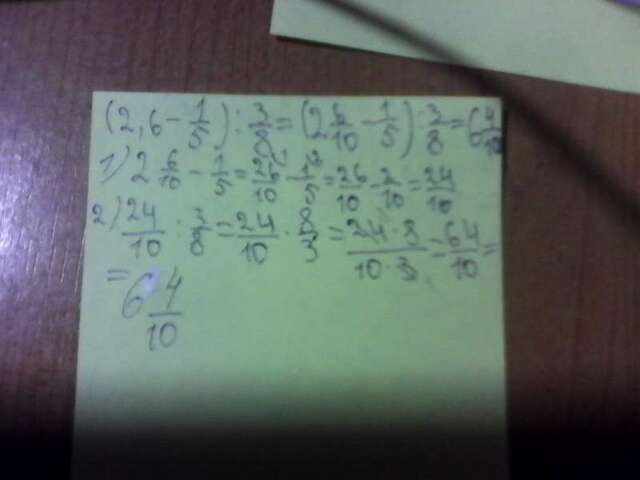 (2,6 - 1/5) : 3/8 = (2 6/10 - 1/5) : 3/8 = 6 4/10
1) 2 6/10 - 1/5 = 26/10 - 1/5 = 26/10 - 2/10 = 24/10
2) 24/10 : 3/8 = 24/10 · 8/3 = 24·8/10·3 = 64/10 =
= 6 4/10